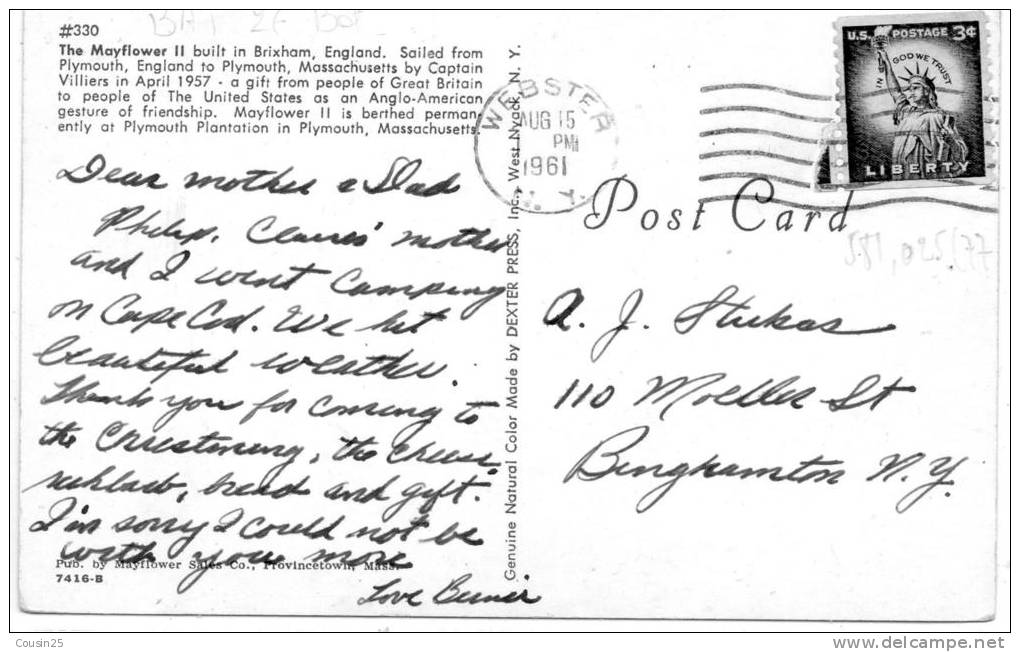 #330
The Mayflower II built in Brixham, England. Sailed from
Plymouth, England to Plymouth, Massachusetts by Captain
Villiers in April 1957 - a gift from people of Great Britain
to people of The United States as an Anglo-American
gesture of friendship. Mayflower II is berthed perman-
ently at Plymouth Plantation in Plymouth, Massachusetts.
Dear mother & Dad
Philip, Claires' mother
and I went Camping
on Cape Cod. We hit
beautiful weather.
Thank you for coming to
the Christening, the cheese
bread and gift.
I'm sorry I could not be
with you more
Love
Pub. by Mayflower Sales Co., Provincetown, Mass.
7416-B
Genuine Natural Color Made by DEXTER PRESS, Inc., West Nyack, N. Y.
WEBSTER
AUG 15
PM
1961
N. Y.
U.S. POSTAGE 3¢
IN GOD WE TRUST
LIBERTY
Post Card
A. J. Stukas
110 Moeller St
Binghamton N.Y.
Cousin25
www.delcampe.net